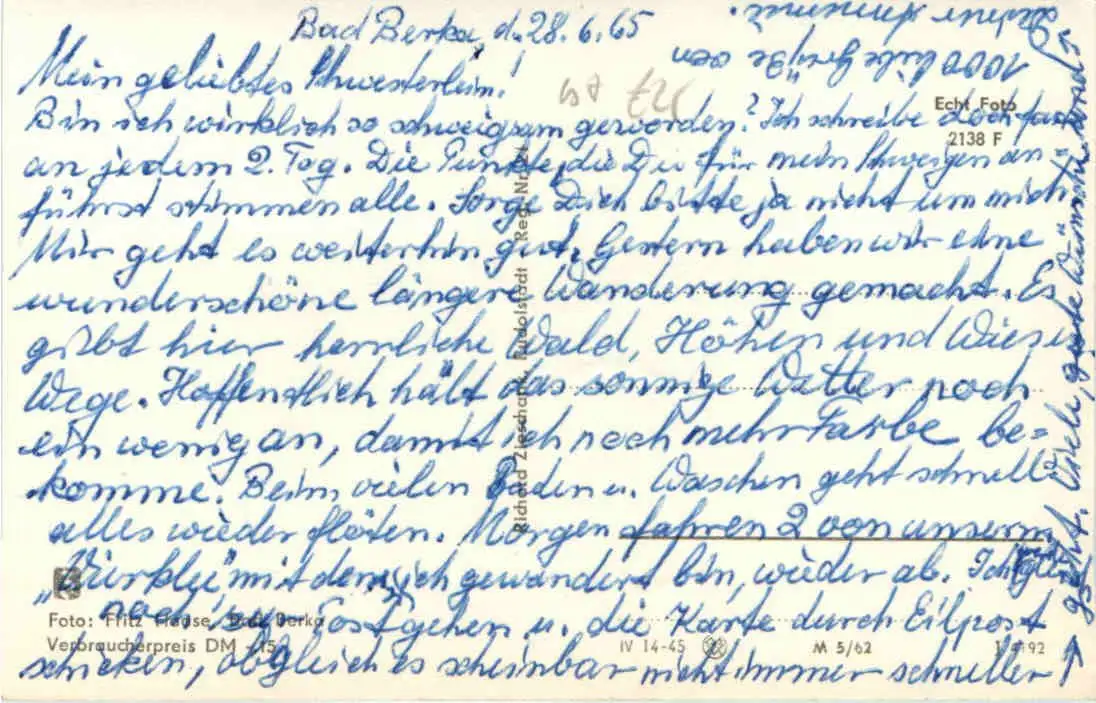 Bad Berka, d. 28.6.65
Mein geliebtes Schwesterlein!
Bin ich wirklich so schweigsam geworden? Ich schreibe doch fast
an jedem 2. Tag. Die Punkte, die Du für mein Schweigen an=
führst stimmen alle. Sorge Dich bitte ja nicht um mich.
Mir geht es weiterhin gut. Gestern haben wir eine
wunderschöne längere Wanderung gemacht. Es
gibt hier herrliche Wald, Höhen und Wiesen
Wege. Hoffentlich hält das sonnige Wetter noch
ein wenig an, damit ich noch mehr Farbe be=
komme. Beim vielen Baden u. Waschen geht schnell
alles wieder flöten. Morgen fahren 2 von unserm
mit denen ich gewandert bin, wieder ab. Ich
noch zur Post gehen u. die Karte durch Eilpost
schicken, obgleich es scheinbar nicht immer schneller
geht. Viele, gute Wünsche und
1000 liebe Grüße von
Deiner
Echt Foto
2138 F
Richard Zieschank, Rudolstadt Reg.-Nr.
Foto: Fritz Hause, Bad Berka
Verbraucherpreis DM -,15
IV 14-45
M 5/62